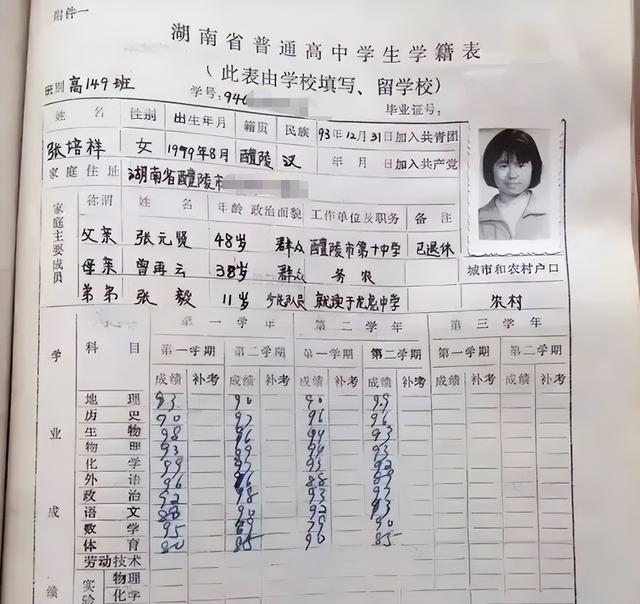 附件一
湖南省普通高中学生学籍表
(此表由学校填写、留学校)
班别 高149班 学号: 940 毕业证号:
姓名 性别 出生年月 籍贯 民族 93年12月31日加入共青团
张培祥 女 1979年8月 醴陵 汉 年 月 日加入共产党
家庭住址 湖南省醴陵市
家庭主要成员 称谓 姓名 年龄 政治面貌 工作单位及职务 备注
父亲 张元贤 48岁 群众 醴陵市第十中学 已退休
母亲 曾再云 38岁 群众 务农 城市和农村户口
弟弟 张毅 11岁 少先队员 就读于龙虎中学 农村
学业成绩 科目 第一学年 第二学年 第三学年
第一学期 第二学期 第一学期 第二学期 第一学期 第二学期
成绩 补考 成绩 补考 成绩 补考 成绩 补考 成绩 补考 成绩 补考
地理 93 90 90 99
历史 90 97 96 96
生物 98 96 94 93
物理 93 99
化学 99 97 93 92
外语 96 88
政治 92 98 93 97
语文 88 90 92 93
数学 95 79 90
体育 80 85 90 85
劳动技术
实验 物理
化学